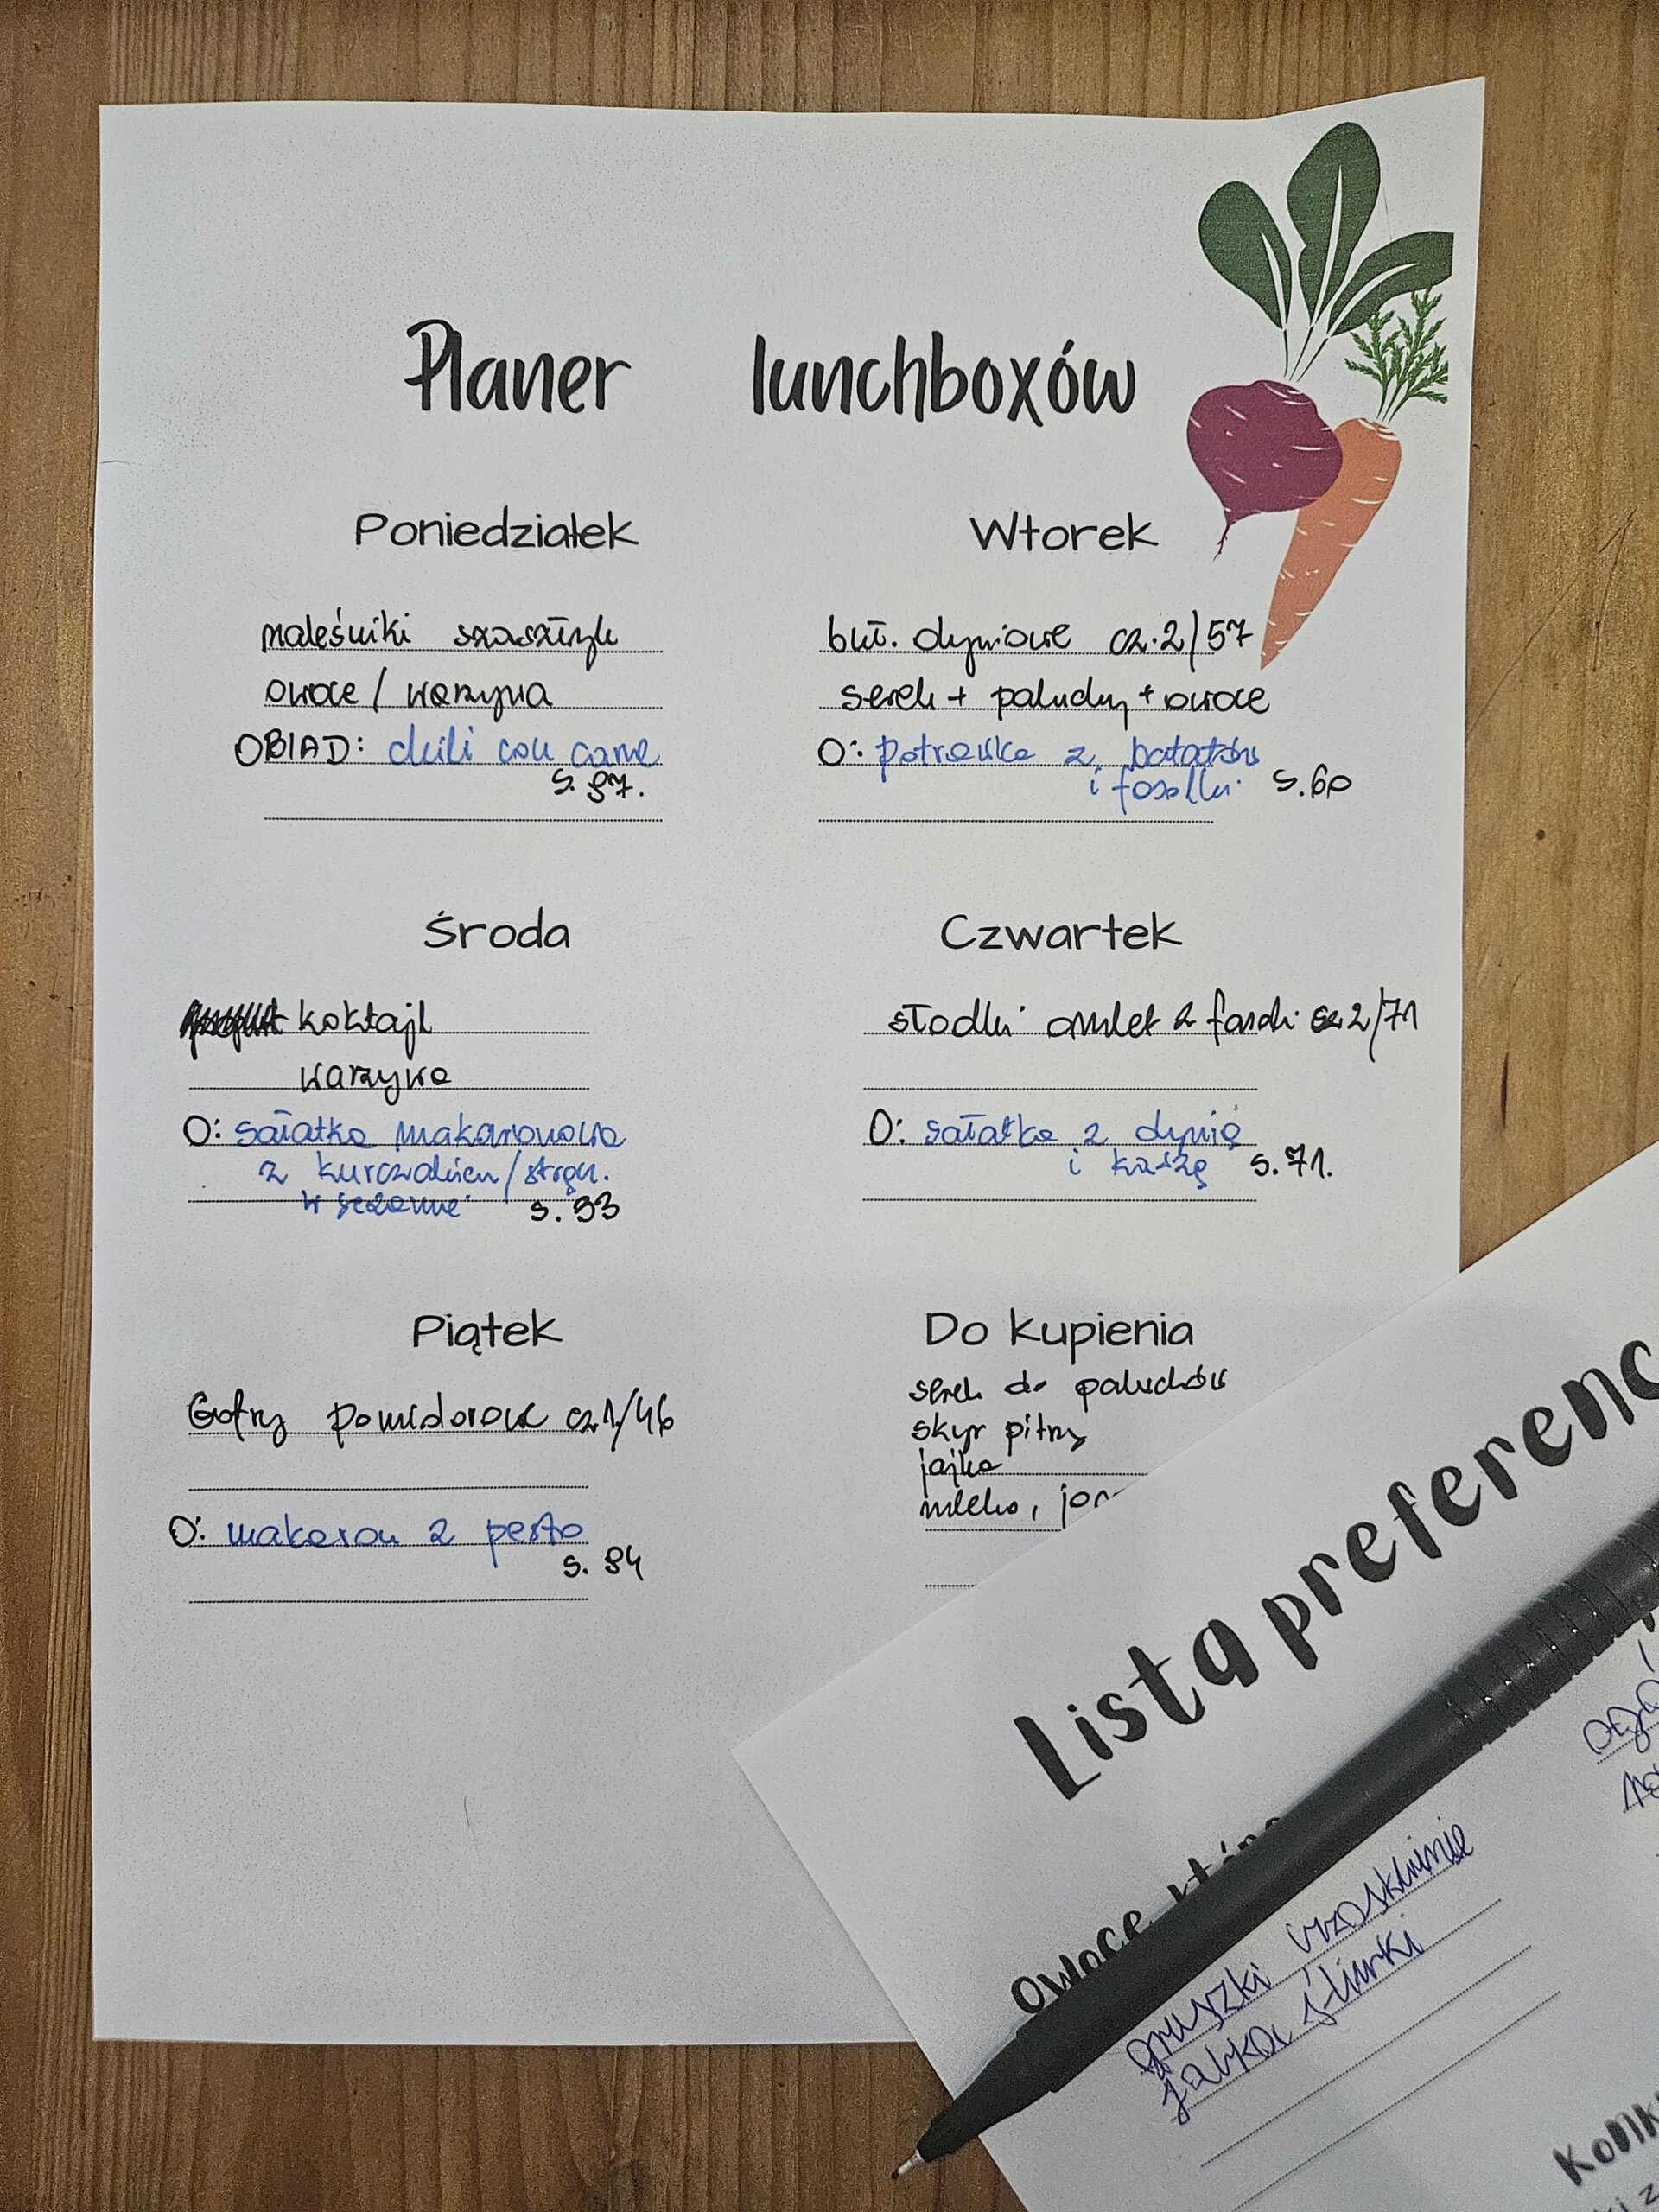 Planer lunchboxów
Poniedziałek
naleśniki szaszłyk
owoce / warzywa
OBIAD: chili con carne
s. 97.
Wtorek
buł. dyniowe cz.2/57
serek + paluchy + owoce
O: potrawka z batatów
i fasolki s.60
Środa
koktajl
warzywa
O: sałatka makaronowa
z kurczakiem/strąc.
w sezamie s. 93
Czwartek
słodki omlet z fasoli cz 2/71
O: sałatka z dynią
i kaszą s. 71.
Piątek
Gofry pomidorowe cz1/46
O: makaron z pesto
s. 94
Do kupienia
serek do paluchów
skyr pitny
jajka
mleko,
Lista preferenc
Owoce
gruszki brzoskwinie
jabłka śliwki